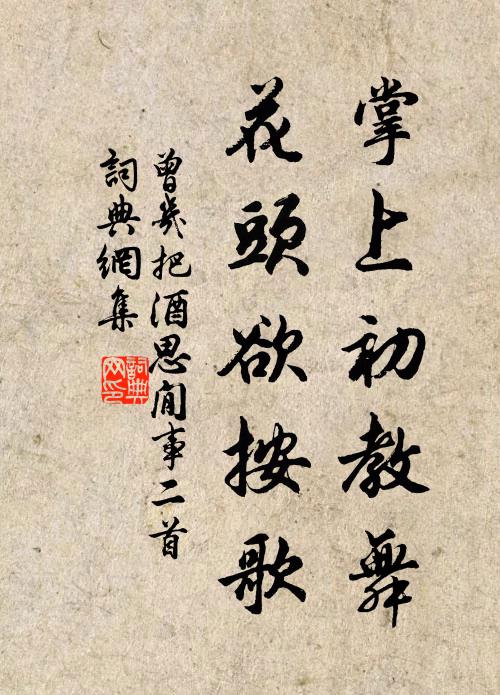 掌上初教舞
花頭欲按歌
曾幾把酒思閒事二首
詞典網集
詞典網印